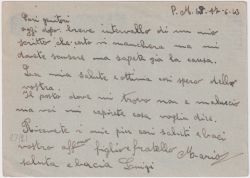 P. M. 17-6-43
Cari genitori
oggi dopo breve intervallo di un mio
scritto che certo vi mancherà ma mi
darete scusare ma sapete già la causa.
La mia salute è ottima così spero della
vostra.
Il posto dove mi trovo non è malaccio
ma voi mi capirete cosa voglia dire.
Ricevete i miei più cari saluti e baci
vostro aff.mo figlio e fratello Mario
saluta e bacia Luigi